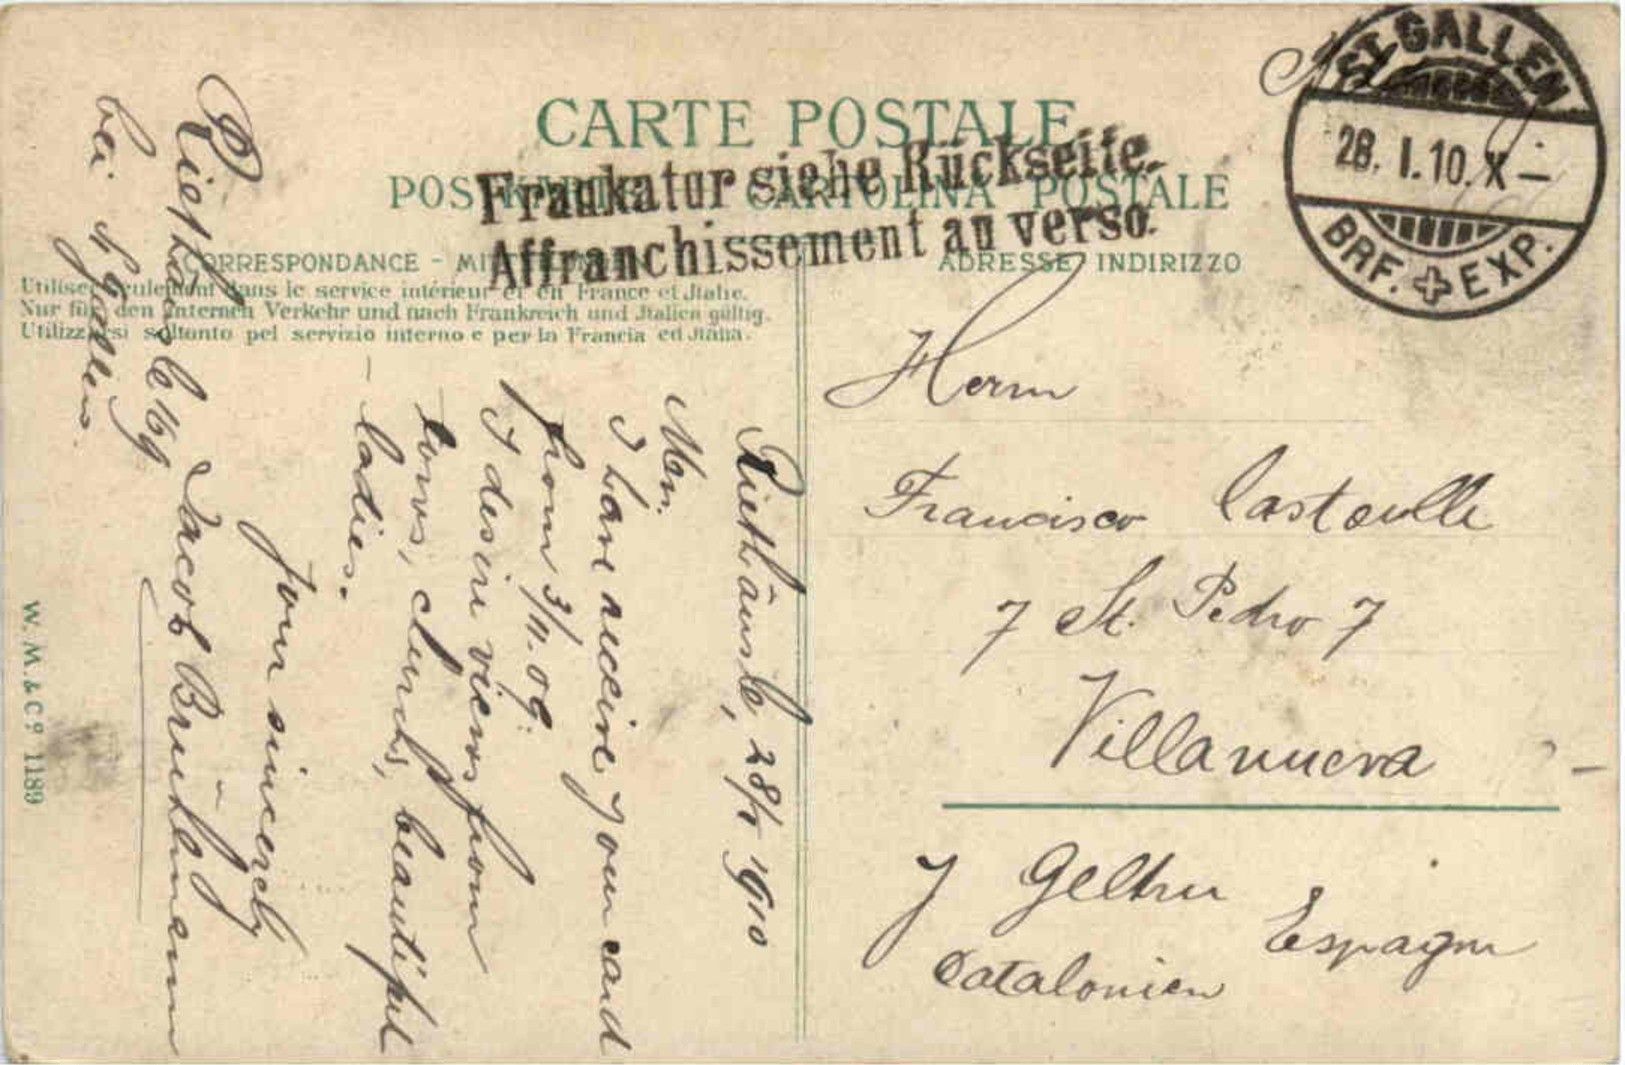 CARTE POSTALE
POSTKARTE CARTOLINA POSTALE
Frankatur siehe Rückseite.
Affranchissement au verso.
ST. GALLEN
28. I. 10. X —
BRF. EXP.
CORRESPONDANCE - MITTEILUNGEN
ADRESSE INDIRIZZO
Utiliser seulement dans le service intérieur et en France et Italie.
Nur für den internen Verkehr und nach Frankreich und Italien gültig.
Utilizzarsi soltanto pel servizio interno e per la Francia ed Italia.
Riethäusle, 28/I 1910
I have receive your card
from 3/11. 09.
I desire views from
towns, church, beautiful
ladies.
your sincerely
Jacob Brühlmann
Riethäusle
bei St. Gallen
W. M. & Cº 1189
Herrn
Francisco
7 St. Pedro 7
Villanueva
y Geltru
Espagne
Catalonien